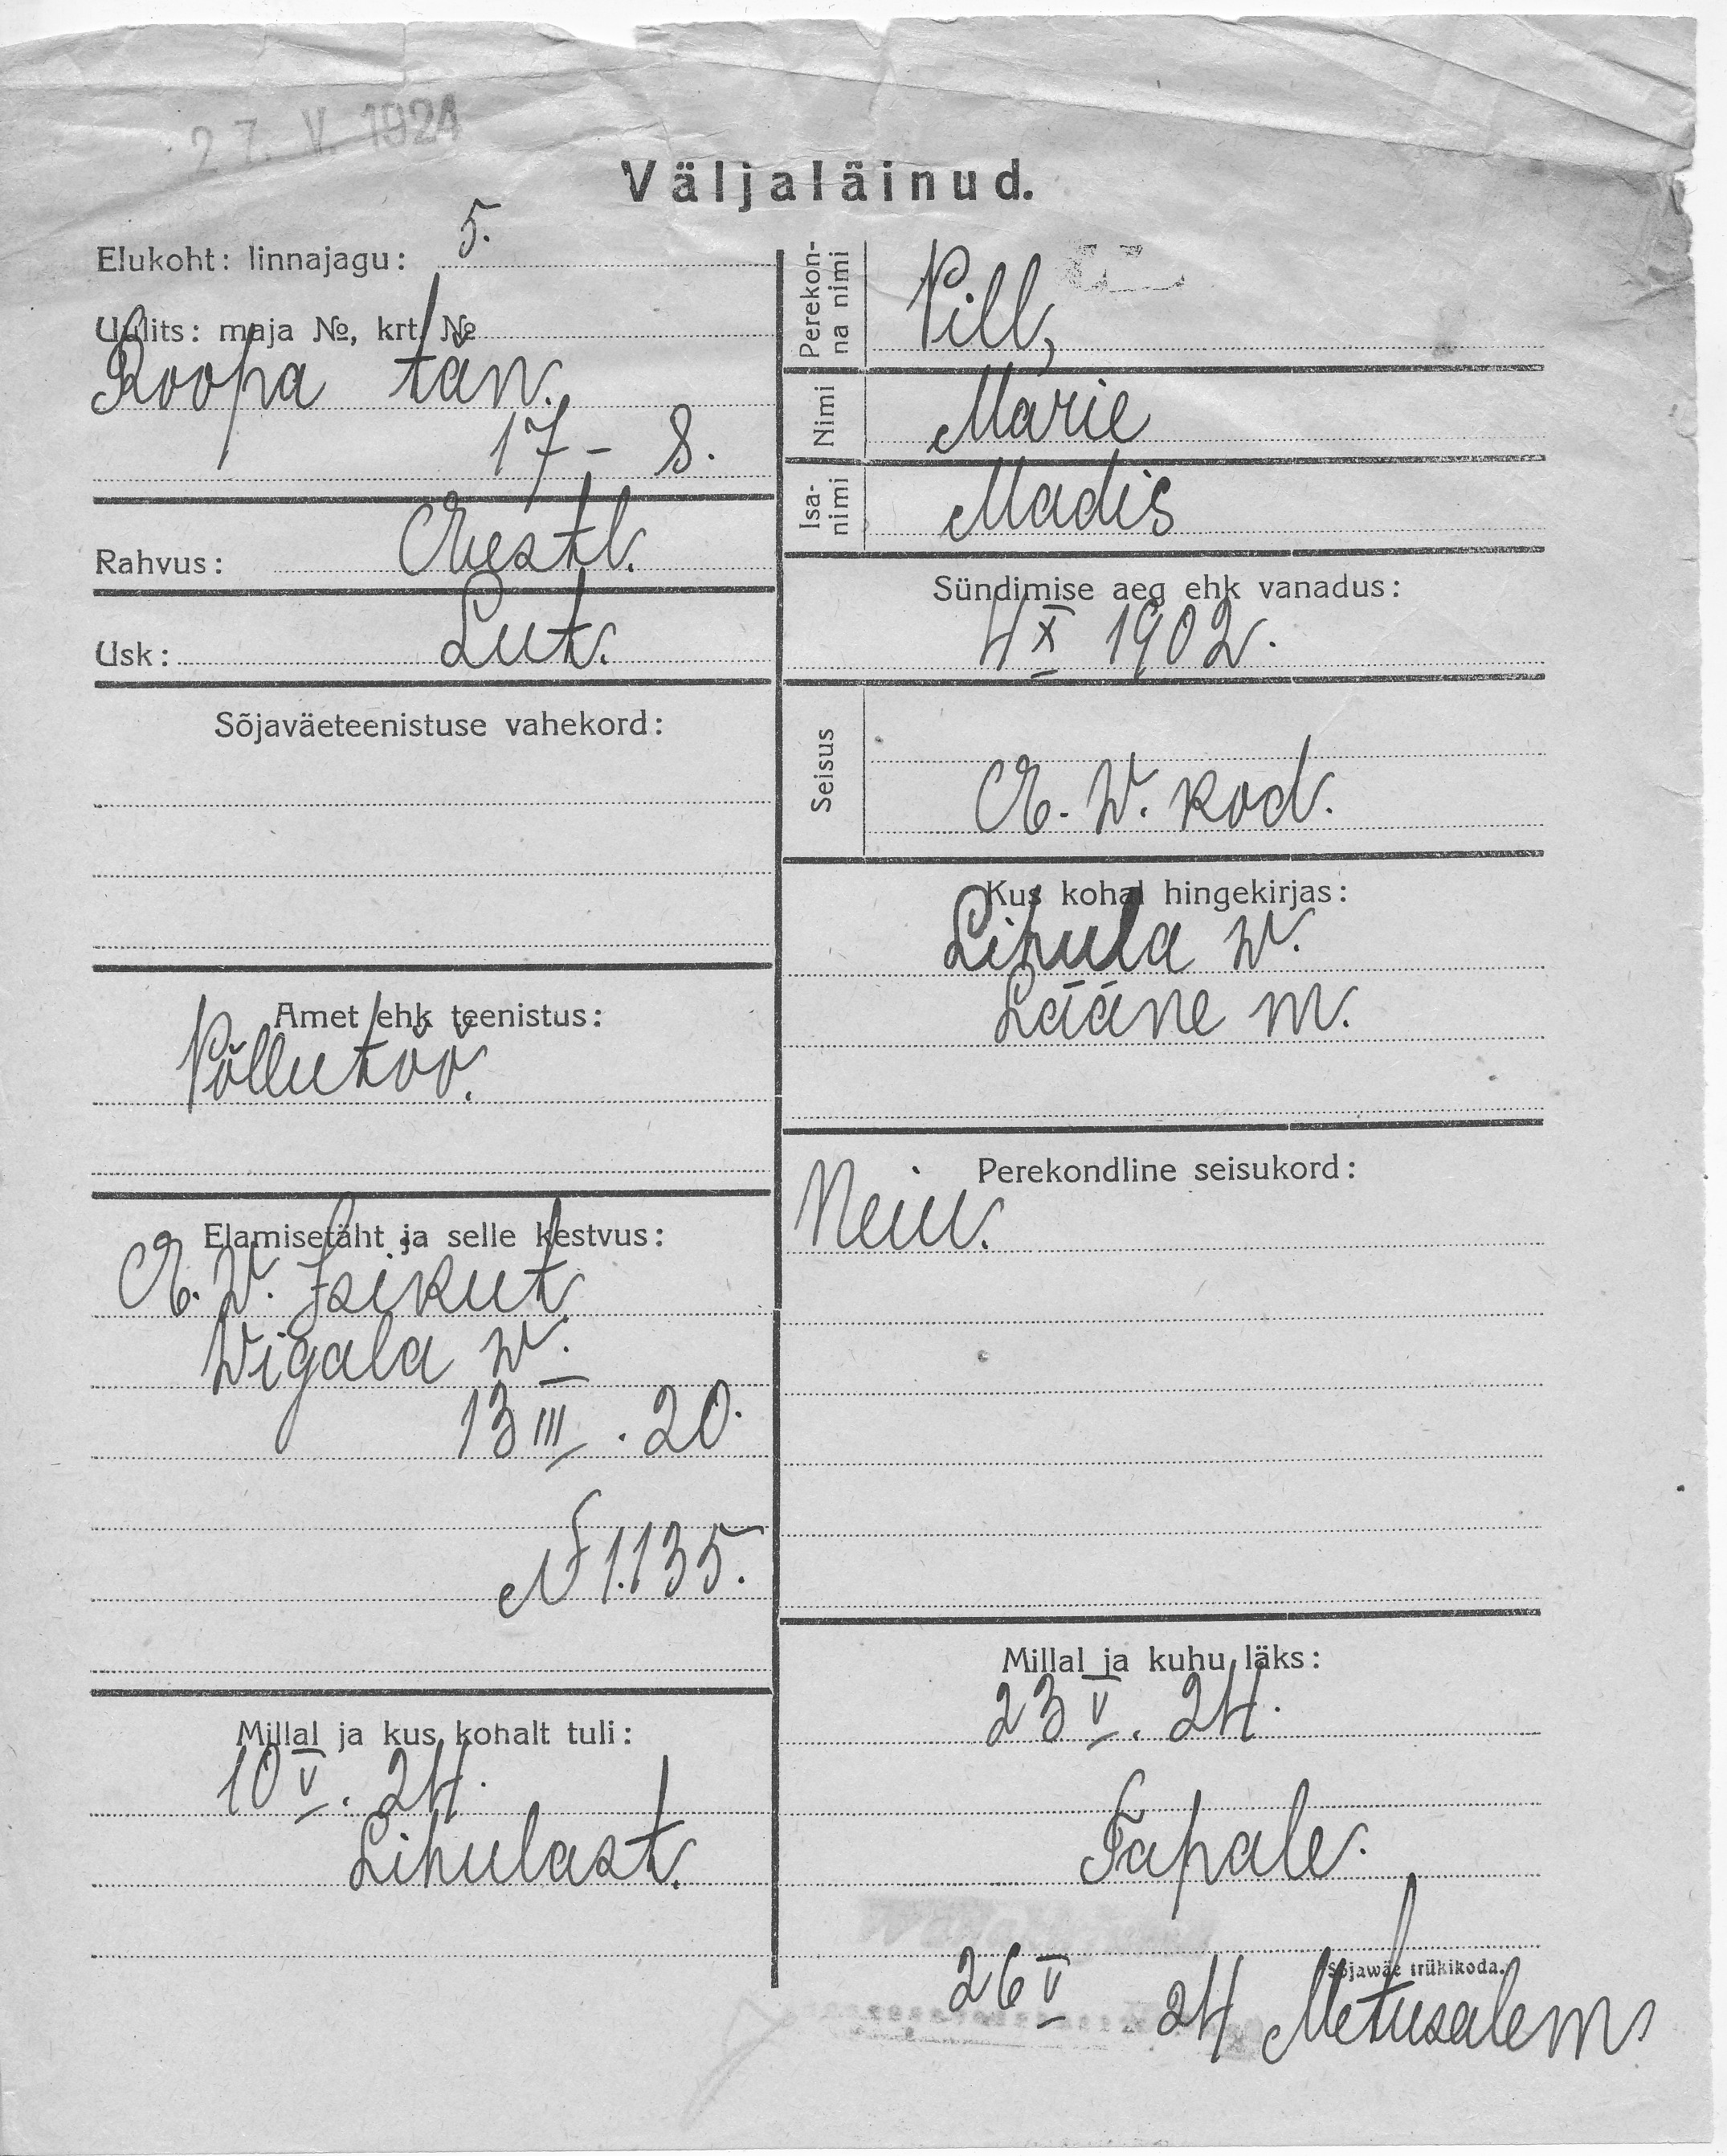 27. V. 1924
Väljaläinud.
Elukoht: linnajagu: 5.
Uulits: maja №, krt. №
Roopa tän.
17 - 8.
Rahvus: Eestl.
Usk: Lut.
Sõjaväeteenistuse vahekord:
Amet ehk teenistus:
Põllutöö.
Elamisetäht ja selle kestvus:
E. W. Isikut
Wigala w.
13 III . 20.
№ 1135.
Millal ja kus kohalt tuli:
10 V. 24.
Lihulast.
Perekon-
na nimi
Pill,
Nimi Marie
Isa-
nimi
Madis
Sündimise aeg ehk vanadus:
4 X 1902.
Seisus
E. W. kod.
Kus kohal hingekirjas:
Lihula w.
Lääne m.
Perekondline seisukord:
Neiu.
Millal ja kuhu läks:
23 V. 24.
Tapale.
Sõjawäe trükikoda.
26 V 24 Metusalem